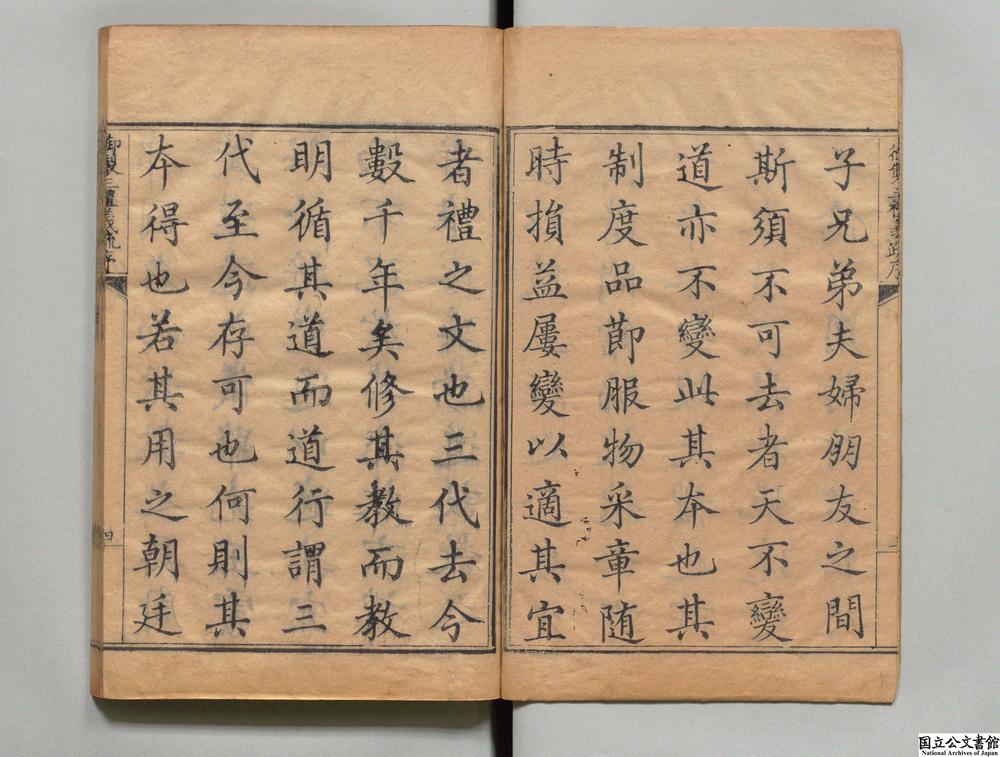 子兄弟夫婦朋友之間
斯須不可去者天不變
道亦不變此其本也其
制度品節服物采章随
時損益屢變以適其宜
者禮之文也三代去今
數千年矣修其教而教
明循其道而道行謂三
代至今存可也何則其
本得也若其用之朝廷
御製三禮義疏序
四
国立公文書館
National Archives of Japan